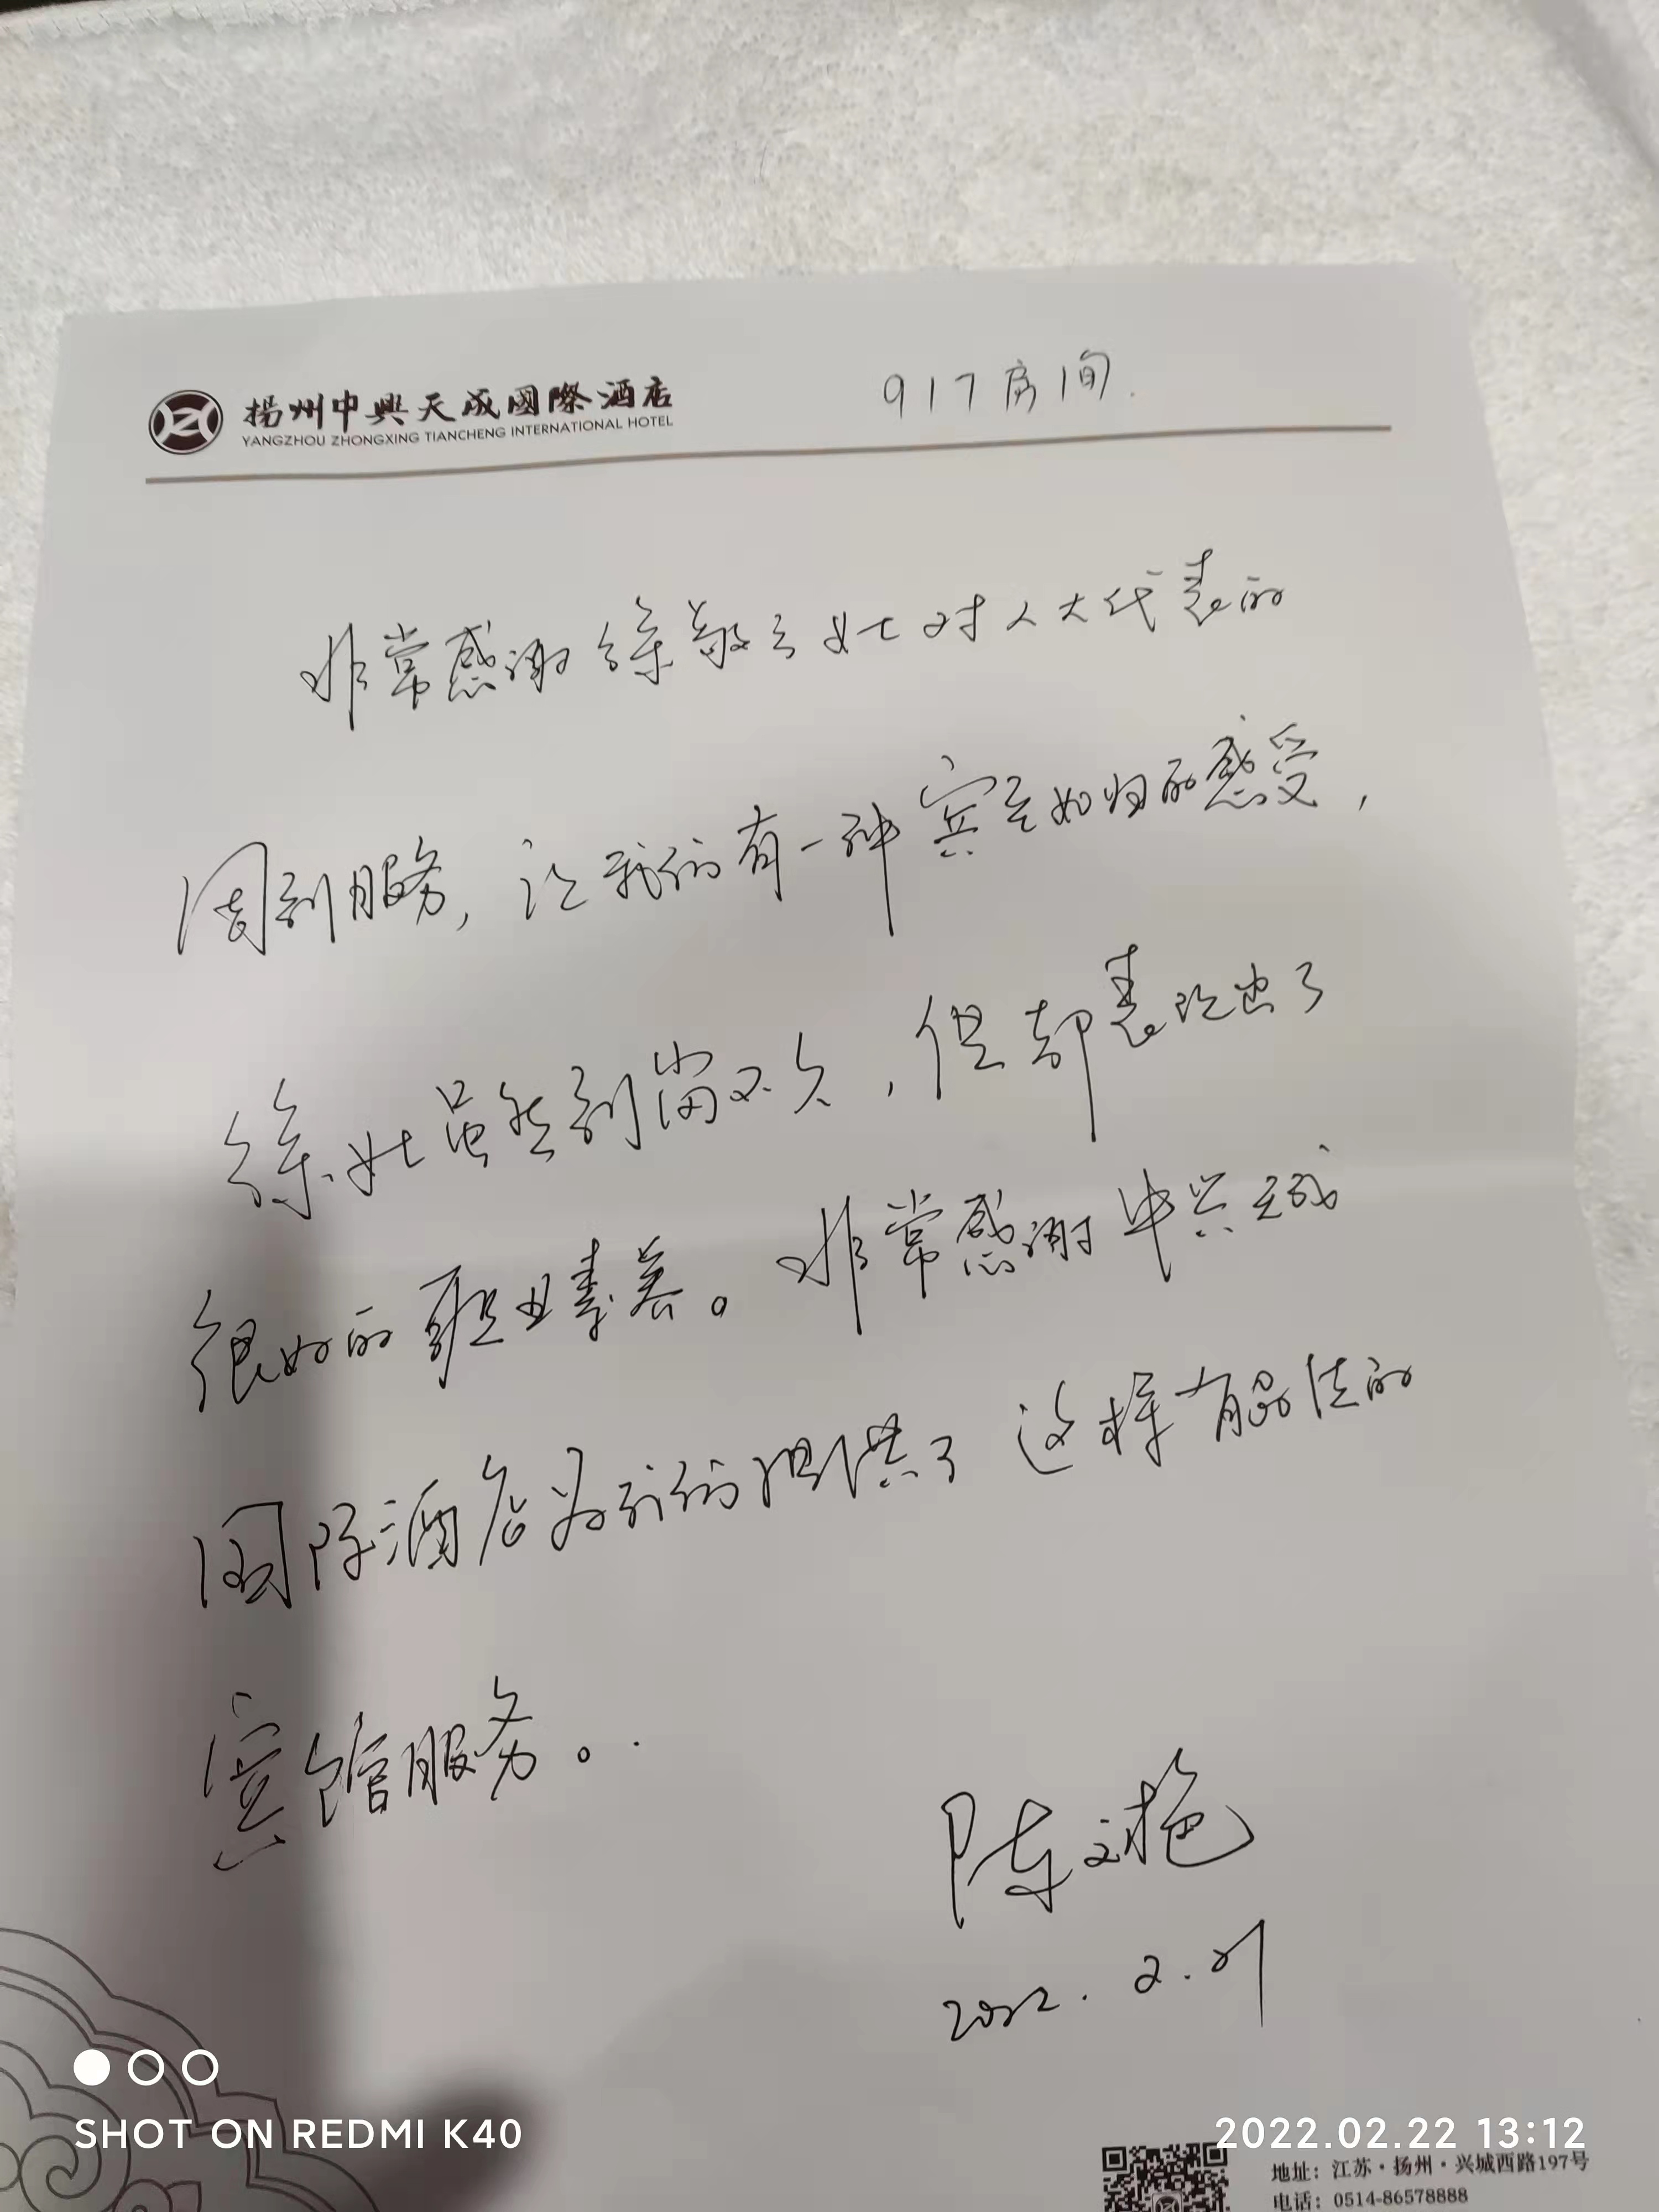 揚州中興天成國際酒店
YANGZHOU ZHONGXING TIANCHENG INTERNATIONAL HOTEL
917房间.
非常感谢徐敬云女士对人大代表的
周到服务,让我们有一种宾至如归的感受,
徐女士虽然到岗不久,但却表现出了
很好的职业素养。非常感谢中兴天成
国际酒店为我们提供了这样有品位的
宾馆服务。
陈文艳
2022.2.21
SHOT ON REDMI K40
2022.02.22 13:12
地址:江苏·扬州·兴城西路197号
电话:0514-86578888